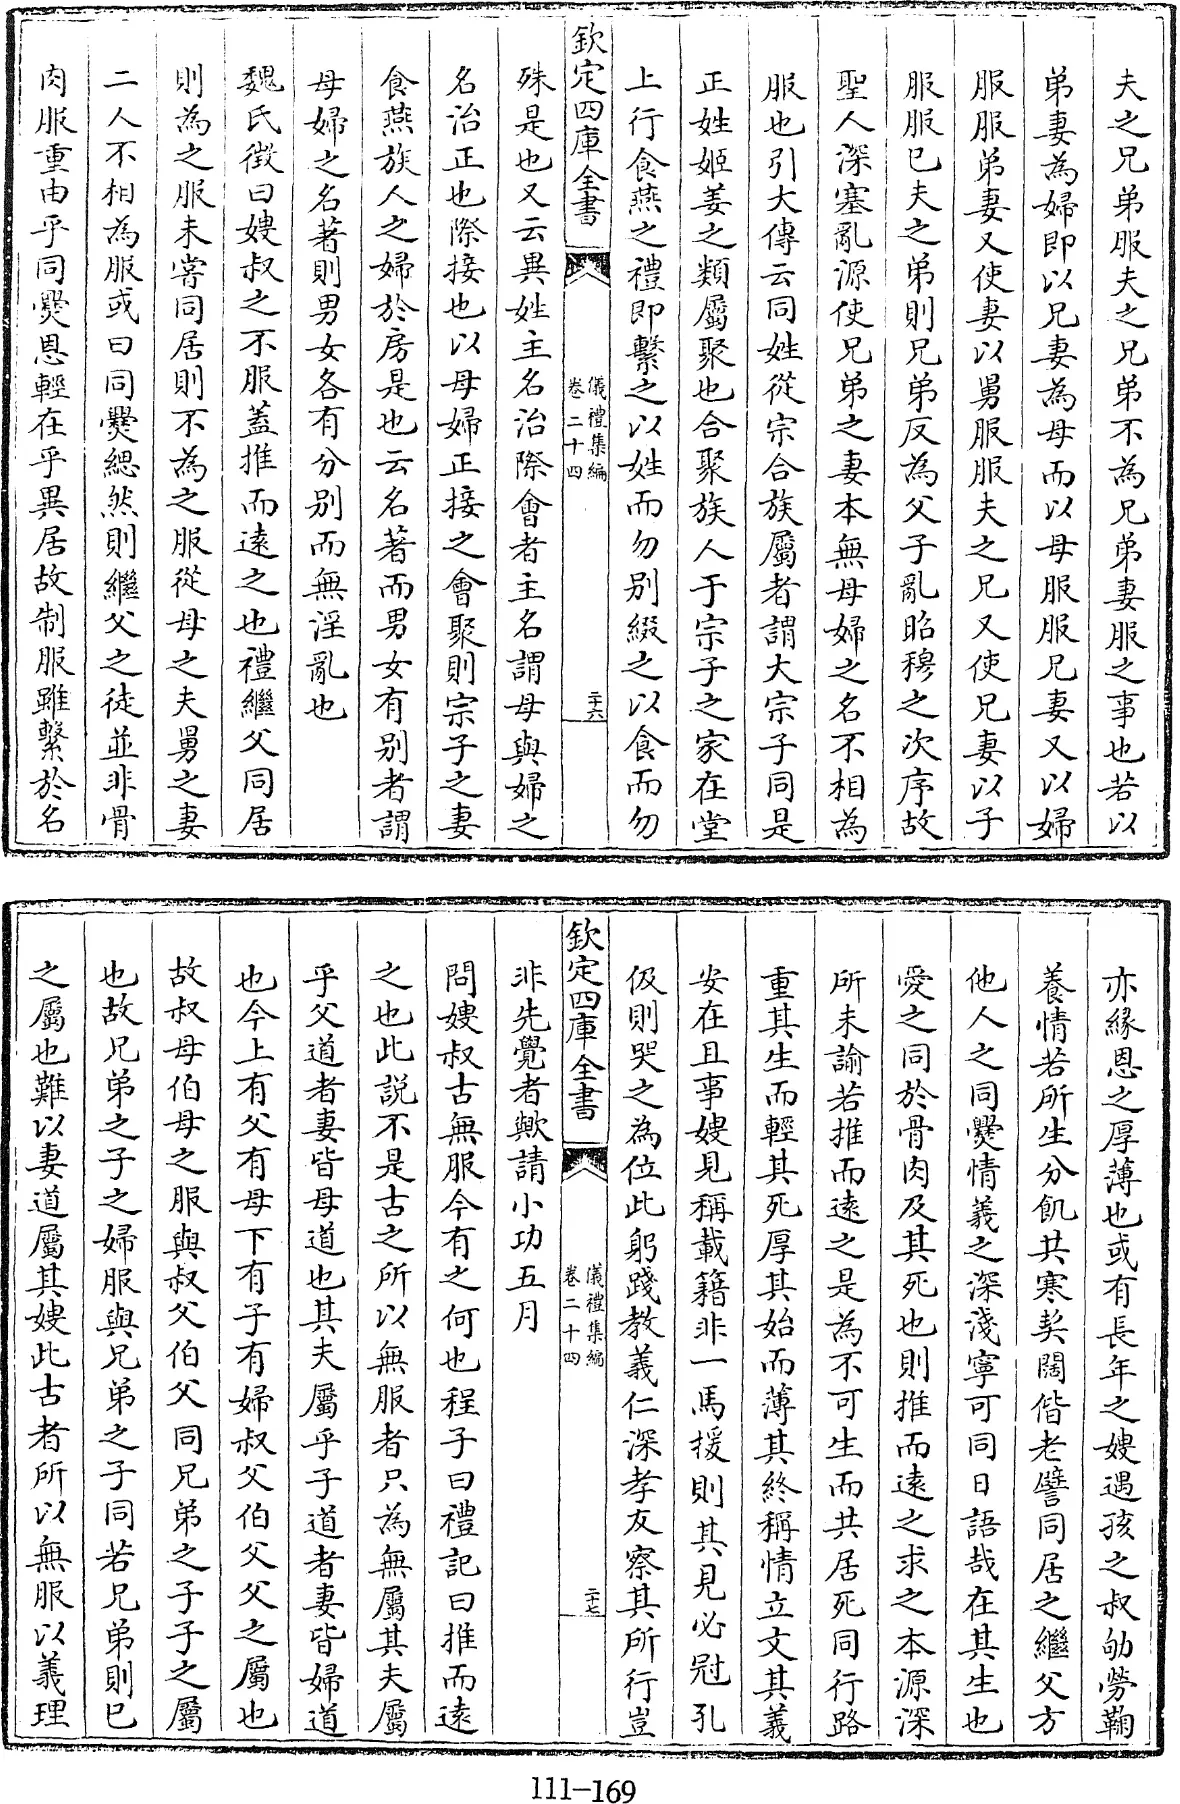 夫之兄弟服夫之兄弟不為兄弟妻服之事也若以
弟妻為婦即以兄妻為母而以母服服兄妻又以婦
服服弟妻又使妻以舅服服夫之兄又使兄妻以子
服服己夫之弟則兄弟反為父子亂昭穆之次序故
聖人深塞亂源使兄弟之妻本無母婦之名不相為
服也引大傳云同姓從宗合族屬者謂大宗子同是
正姓姬姜之類屬聚也合聚族人于宗子之家在堂
上行食燕之禮即繫之以姓而勿別綴之以食而勿
欽定四庫全書
儀禮集編
卷二十四
二十六
殊是也又云異姓主名治際會者主名謂母與婦之
名治正也際接也以母婦正接之會聚則宗子之妻
食燕族人之婦於房是也云名著而男女有別者謂
母婦之名著則男女各有分別而無淫亂也
魏氏徵曰嫂叔之不服蓋推而遠之也禮繼父同居
則為之服未嘗同居則不為之服從母之夫舅之妻
二人不相為服或曰同爨緦然則繼父之徒並非骨
肉服重由乎同爨恩輕在乎異居故制服雖繫於名
亦緣恩之厚薄也或有長年之嫂遇孩之叔劬勞鞠
養情若所生分飢共寒契闊偕老譬同居之繼父方
他人之同爨情義之深淺寧可同日語哉在其生也
愛之同於骨肉及其死也則推而遠之求之本源深
所未諭若推而遠之是為不可生而共居死同行路
重其生而輕其死厚其始而薄其終稱情立文其義
安在且事嫂見稱載籍非一馬援則其見必冠孔
伋則哭之為位此躬踐教義仁深孝友察其所行豈
欽定四庫全書
儀禮集編
卷二十四
二十七
非先覺者歟請小功五月
問嫂叔古無服今有之何也程子曰禮記曰推而遠
之也此說不是古之所以無服者只為無屬其夫屬
乎父道者妻皆母道也其夫屬乎子道者妻皆婦道
也今上有父有母下有子有婦叔父伯父父之屬也
故叔母伯母之服與叔父伯父同兄弟之子子之屬
也故兄弟之子之婦服與兄弟之子同若兄弟則己
之屬也難以妻道屬其嫂此古者所以無服以義理
111-169